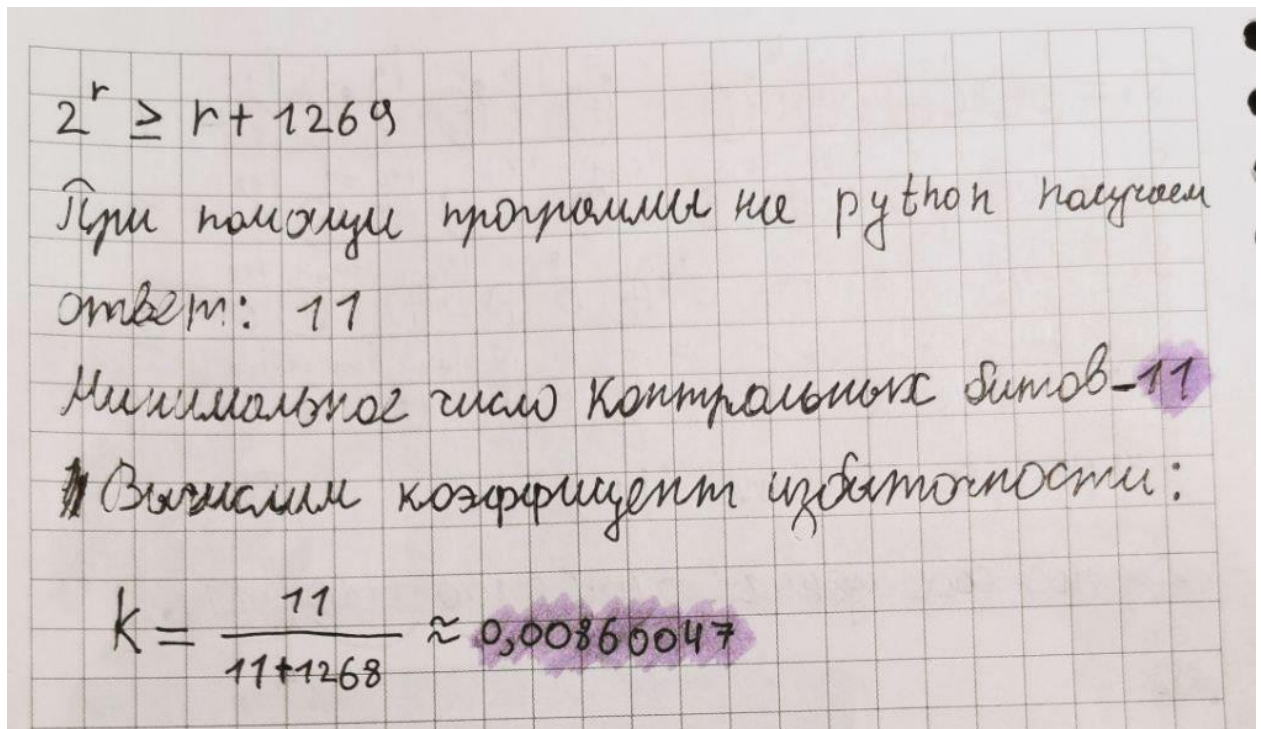 2^r ≥ r + 1269
При помощи программы на python получаем
ответ: 11
Минимальное число контрольных битов - 11
Вычислим коэффициент избыточности:
K = 11 / (11+1268) ≈ 0,00860047